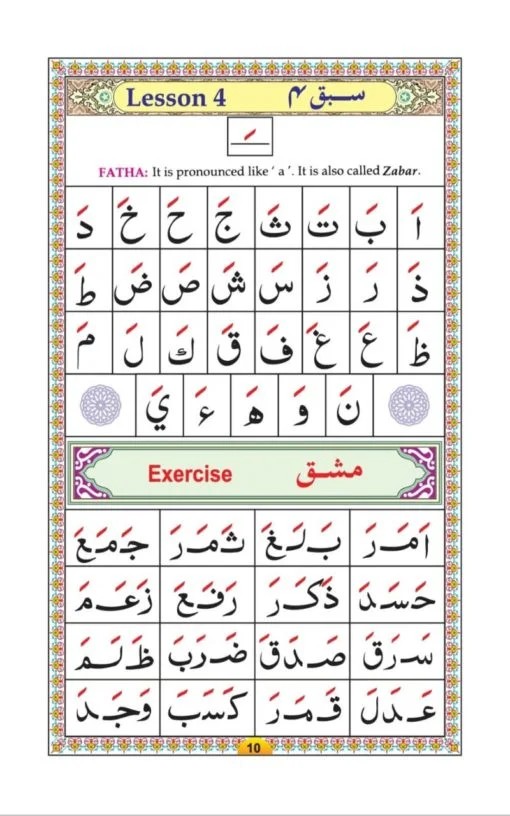 Lesson 4 سبق ۴
َ
FATHA: It is pronounced like ‘ a ’. It is also called Zabar.
اَ بَ تَ ثَ جَ حَ خَ دَ
ذَ رَ زَ سَ شَ صَ ضَ طَ
ظَ عَ غَ فَ قَ كَ لَ مَ
نَ وَ هَ ءَ يَ
Exercise مشق
اَمَرَ بَلَغَ ثَمَرَ جَمَعَ
حَسَدَ ذَكَرَ رَفَعَ زَعَمَ
سَرَقَ صَدَقَ ضَرَبَ ظَلَمَ
عَدَلَ قَمَرَ كَسَبَ وَجَدَ
10